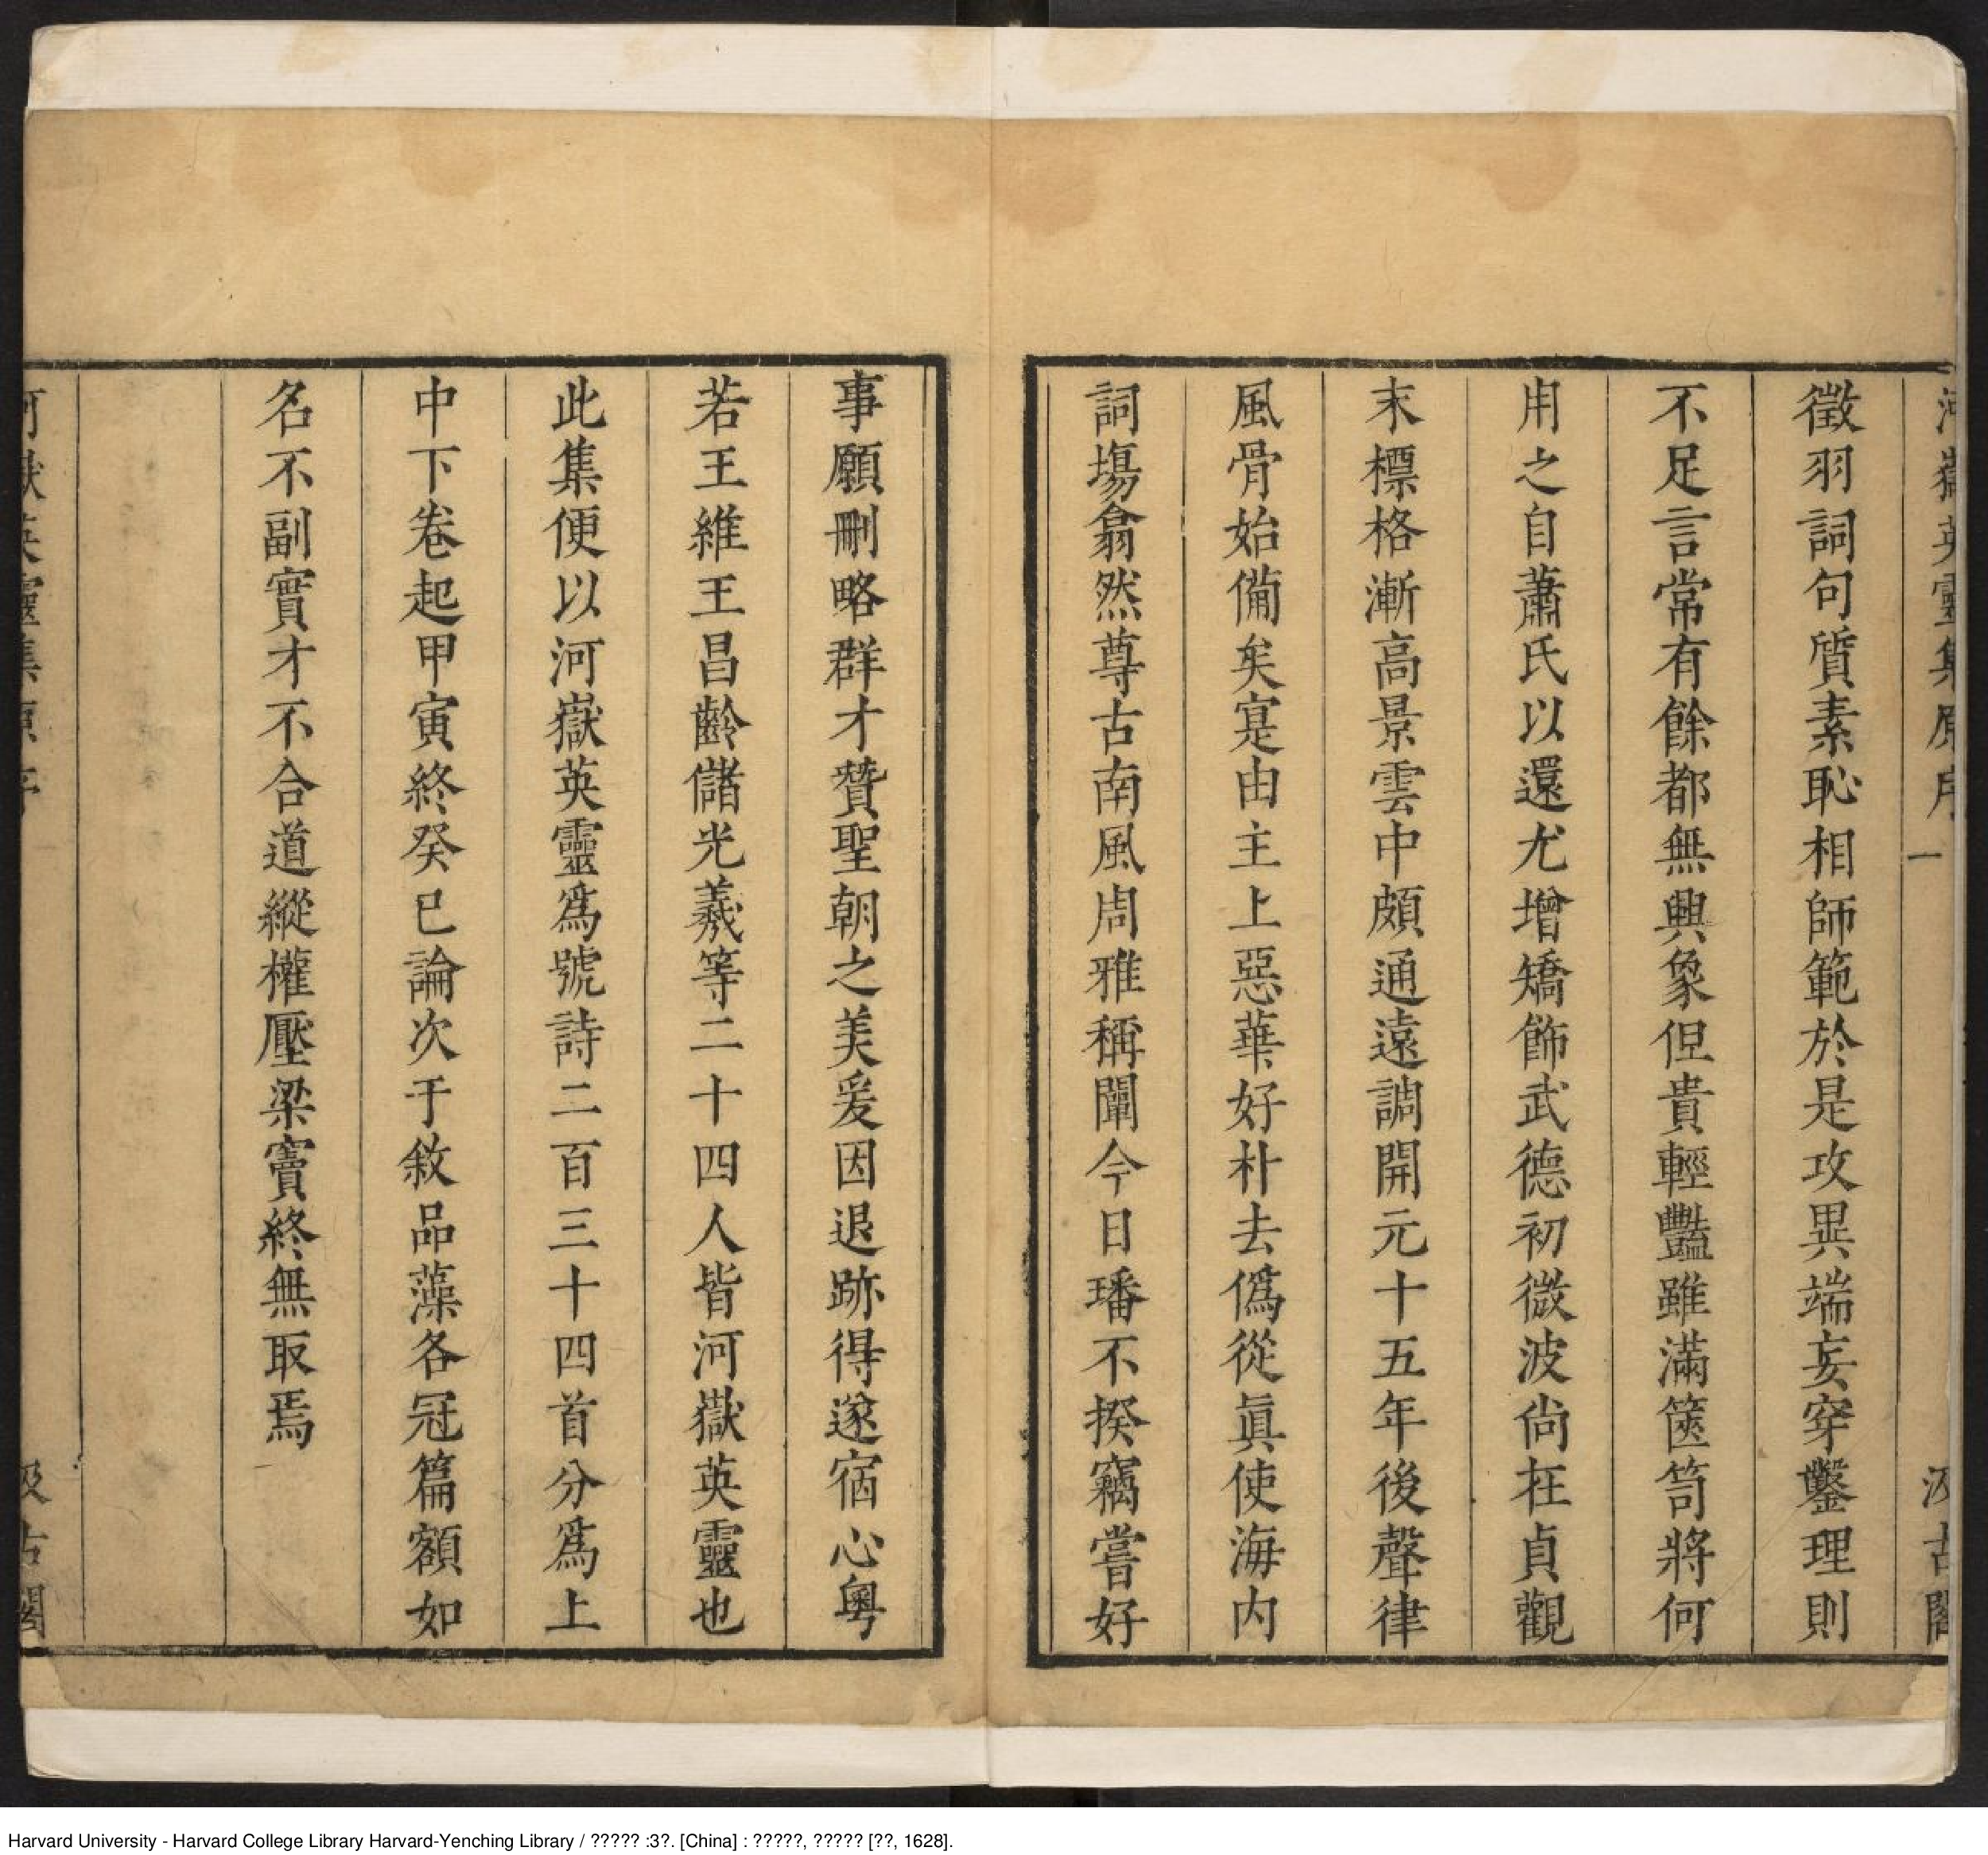 河嶽英靈集原序
一
汲古閣
徵羽詞句質素恥相師範於是攻異端妄穿鑿理則
不足言常有餘都無興象但貴輕豔雖滿篋笥將何
用之自蕭氏以還尤增矯飾武德初微波尙在貞觀
末標格漸高景雲中頗通遠調開元十五年後聲律
風骨始備矣寔由主上惡華好朴去僞從眞使海内
詞塲翕然尊古南風周雅稱闡今日璠不揆竊嘗好
事願刪略群才贊聖朝之美爰因退跡得遂宿心粤
若王維王昌齡儲光羲等二十四人皆河嶽英靈也
此集便以河嶽英靈爲號詩二百三十四首分爲上
中下卷起甲寅終癸巳論次于敘品藻各冠篇額如
名不副實才不合道縱權壓梁竇終無取焉
河嶽英靈集原序
汲古閣
Harvard University - Harvard College Library Harvard-Yenching Library / ????? :3?. [China] : ?????, ????? [??, 1628].